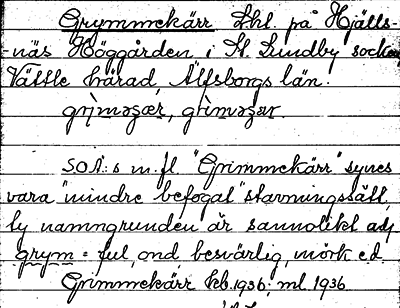 Grymmekärr Lht. på Hjälls-
-näs Höggården i St. Lundby socken
Vättle härad, Älfsborgs län.
SOA:s m.fl "Grimmekärr" synes
vara "mindre befogat" stavningssätt,
ty namngrunden är sannolikt adj
grym = ful, ond besvärlig, mörk e.d.
Grimmekärr Eb. 1936. ml. 1936